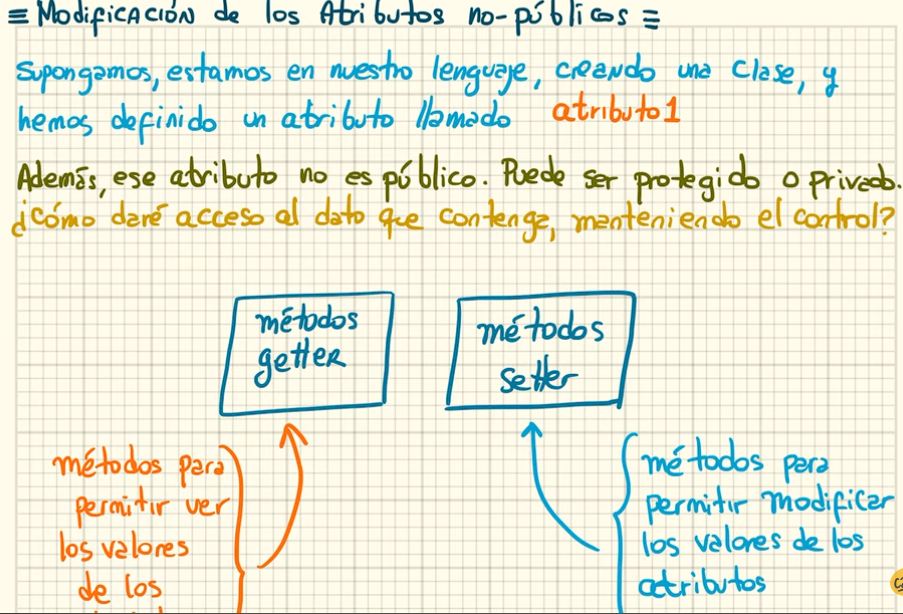 ≡ Modificación de los Atributos no-públicos ≡
Supongamos, estamos en nuestro lenguaje, creando una clase, y
hemos definido un atributo llamado atributo1
Además, ese atributo no es público. Puede ser protegido o privado.
¿Cómo daré acceso al dato que contenga, manteniendo el control?
métodos
getter
métodos
setter
métodos para
permitir ver
los valores
de los
métodos para
permitir modificar
los valores de los
atributos